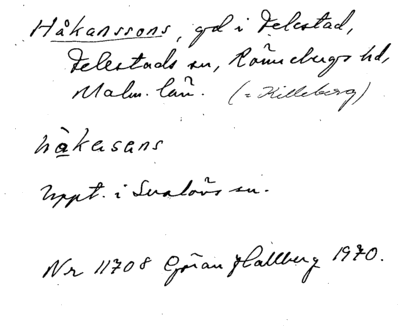 Håkanssons, gd i Felestad,
Felestads sn, Rönnebergs hd,
Malm. län. (= Killeberg)
håkasans
Uppt. i Svalövs sn.
Nr 11708 Göran Hallberg 1970.